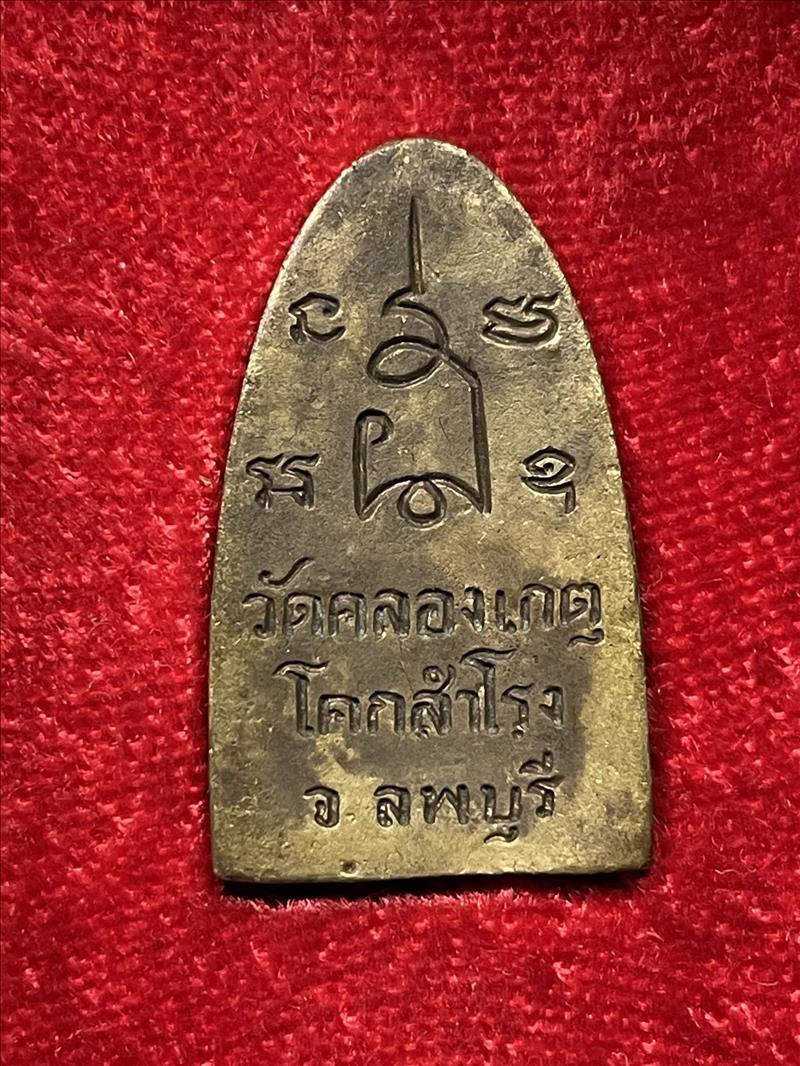 วัดคลองเกตุ
โคกสำโรง
จ ลพบุรี